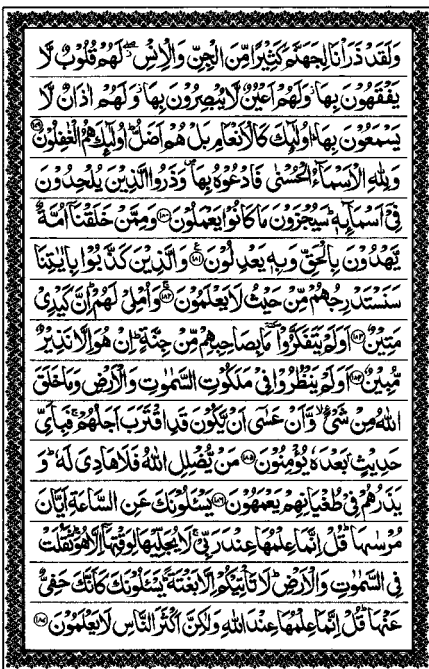 وَلَقَدْ ذَرَاْنَا لِجَهَنَّمَ كَثِيْرًا مِّنَ الْجِنِّ وَالْاِنْسِ ۖ لَهُمْ قُلُوْبٌ لَّا
يَفْقَهُوْنَ بِهَا ۫ وَلَهُمْ اَعْيُنٌ لَّا يُبْصِرُوْنَ بِهَا ۫ وَلَهُمْ اٰذَانٌ لَّا
يَسْمَعُوْنَ بِهَا ؕ اُولٰٓئِكَ كَالْاَنْعَامِ بَلْ هُمْ اَضَلُّ ؕ اُولٰٓئِكَ هُمُ الْغٰفِلُوْنَ ۝۱۷۹
وَلِلّٰهِ الْاَسْمَآءُ الْحُسْنٰى فَادْعُوْهُ بِهَا ۪ وَذَرُوا الَّذِيْنَ يُلْحِدُوْنَ
فِيْۤ اَسْمَآئِهٖ ؕ سَيُجْزَوْنَ مَا كَانُوْا يَعْمَلُوْنَ ۝۱۸۰ وَمِمَّنْ خَلَقْنَاۤ اُمَّةٌ
يَّهْدُوْنَ بِالْحَقِّ وَبِهٖ يَعْدِلُوْنَ ۝۱۸۱ وَالَّذِيْنَ كَذَّبُوْا بِاٰيٰتِنَا
سَنَسْتَدْرِجُهُمْ مِّنْ حَيْثُ لَا يَعْلَمُوْنَ ۝۱۸۲ وَاُمْلِيْ لَهُمْ ؕ اِنَّ كَيْدِيْ
مَتِيْنٌ ۝۱۸۳ اَوَلَمْ يَتَفَكَّرُوْا ٚ مَا بِصَاحِبِهِمْ مِّنْ جِنَّةٍ ؕ اِنْ هُوَ اِلَّا نَذِيْرٌ
مُّبِيْنٌ ۝۱۸۴ اَوَلَمْ يَنْظُرُوْا فِيْ مَلَكُوْتِ السَّمٰوٰتِ وَالْاَرْضِ وَمَا خَلَقَ
اللّٰهُ مِنْ شَيْءٍ ۙ وَّاَنْ عَسٰۤى اَنْ يَّكُوْنَ قَدِ اقْتَرَبَ اَجَلُهُمْ ۚ فَبِاَيِّ
حَدِيْثٍۭ بَعْدَهٗ يُؤْمِنُوْنَ ۝۱۸۵ مَنْ يُّضْلِلِ اللّٰهُ فَلَا هَادِيَ لَهٗ ؕ وَ
يَذَرُهُمْ فِيْ طُغْيَانِهِمْ يَعْمَهُوْنَ ۝۱۸۶ يَسْـَٔلُوْنَكَ عَنِ السَّاعَةِ اَيَّانَ
مُرْسٰىهَا ؕ قُلْ اِنَّمَا عِلْمُهَا عِنْدَ رَبِّيْ ۚ لَا يُجَلِّيْهَا لِوَقْتِهَاۤ اِلَّا هُوَ ؔۘ ثَقُلَتْ
فِي السَّمٰوٰتِ وَالْاَرْضِ ؕ لَا تَاْتِيْكُمْ اِلَّا بَغْتَةً ؕ يَسْـَٔلُوْنَكَ كَاَنَّكَ حَفِيٌّ
عَنْهَا ؕ قُلْ اِنَّمَا عِلْمُهَا عِنْدَ اللّٰهِ وَلٰكِنَّ اَكْثَرَ النَّاسِ لَا يَعْلَمُوْنَ ۝۱۸۷